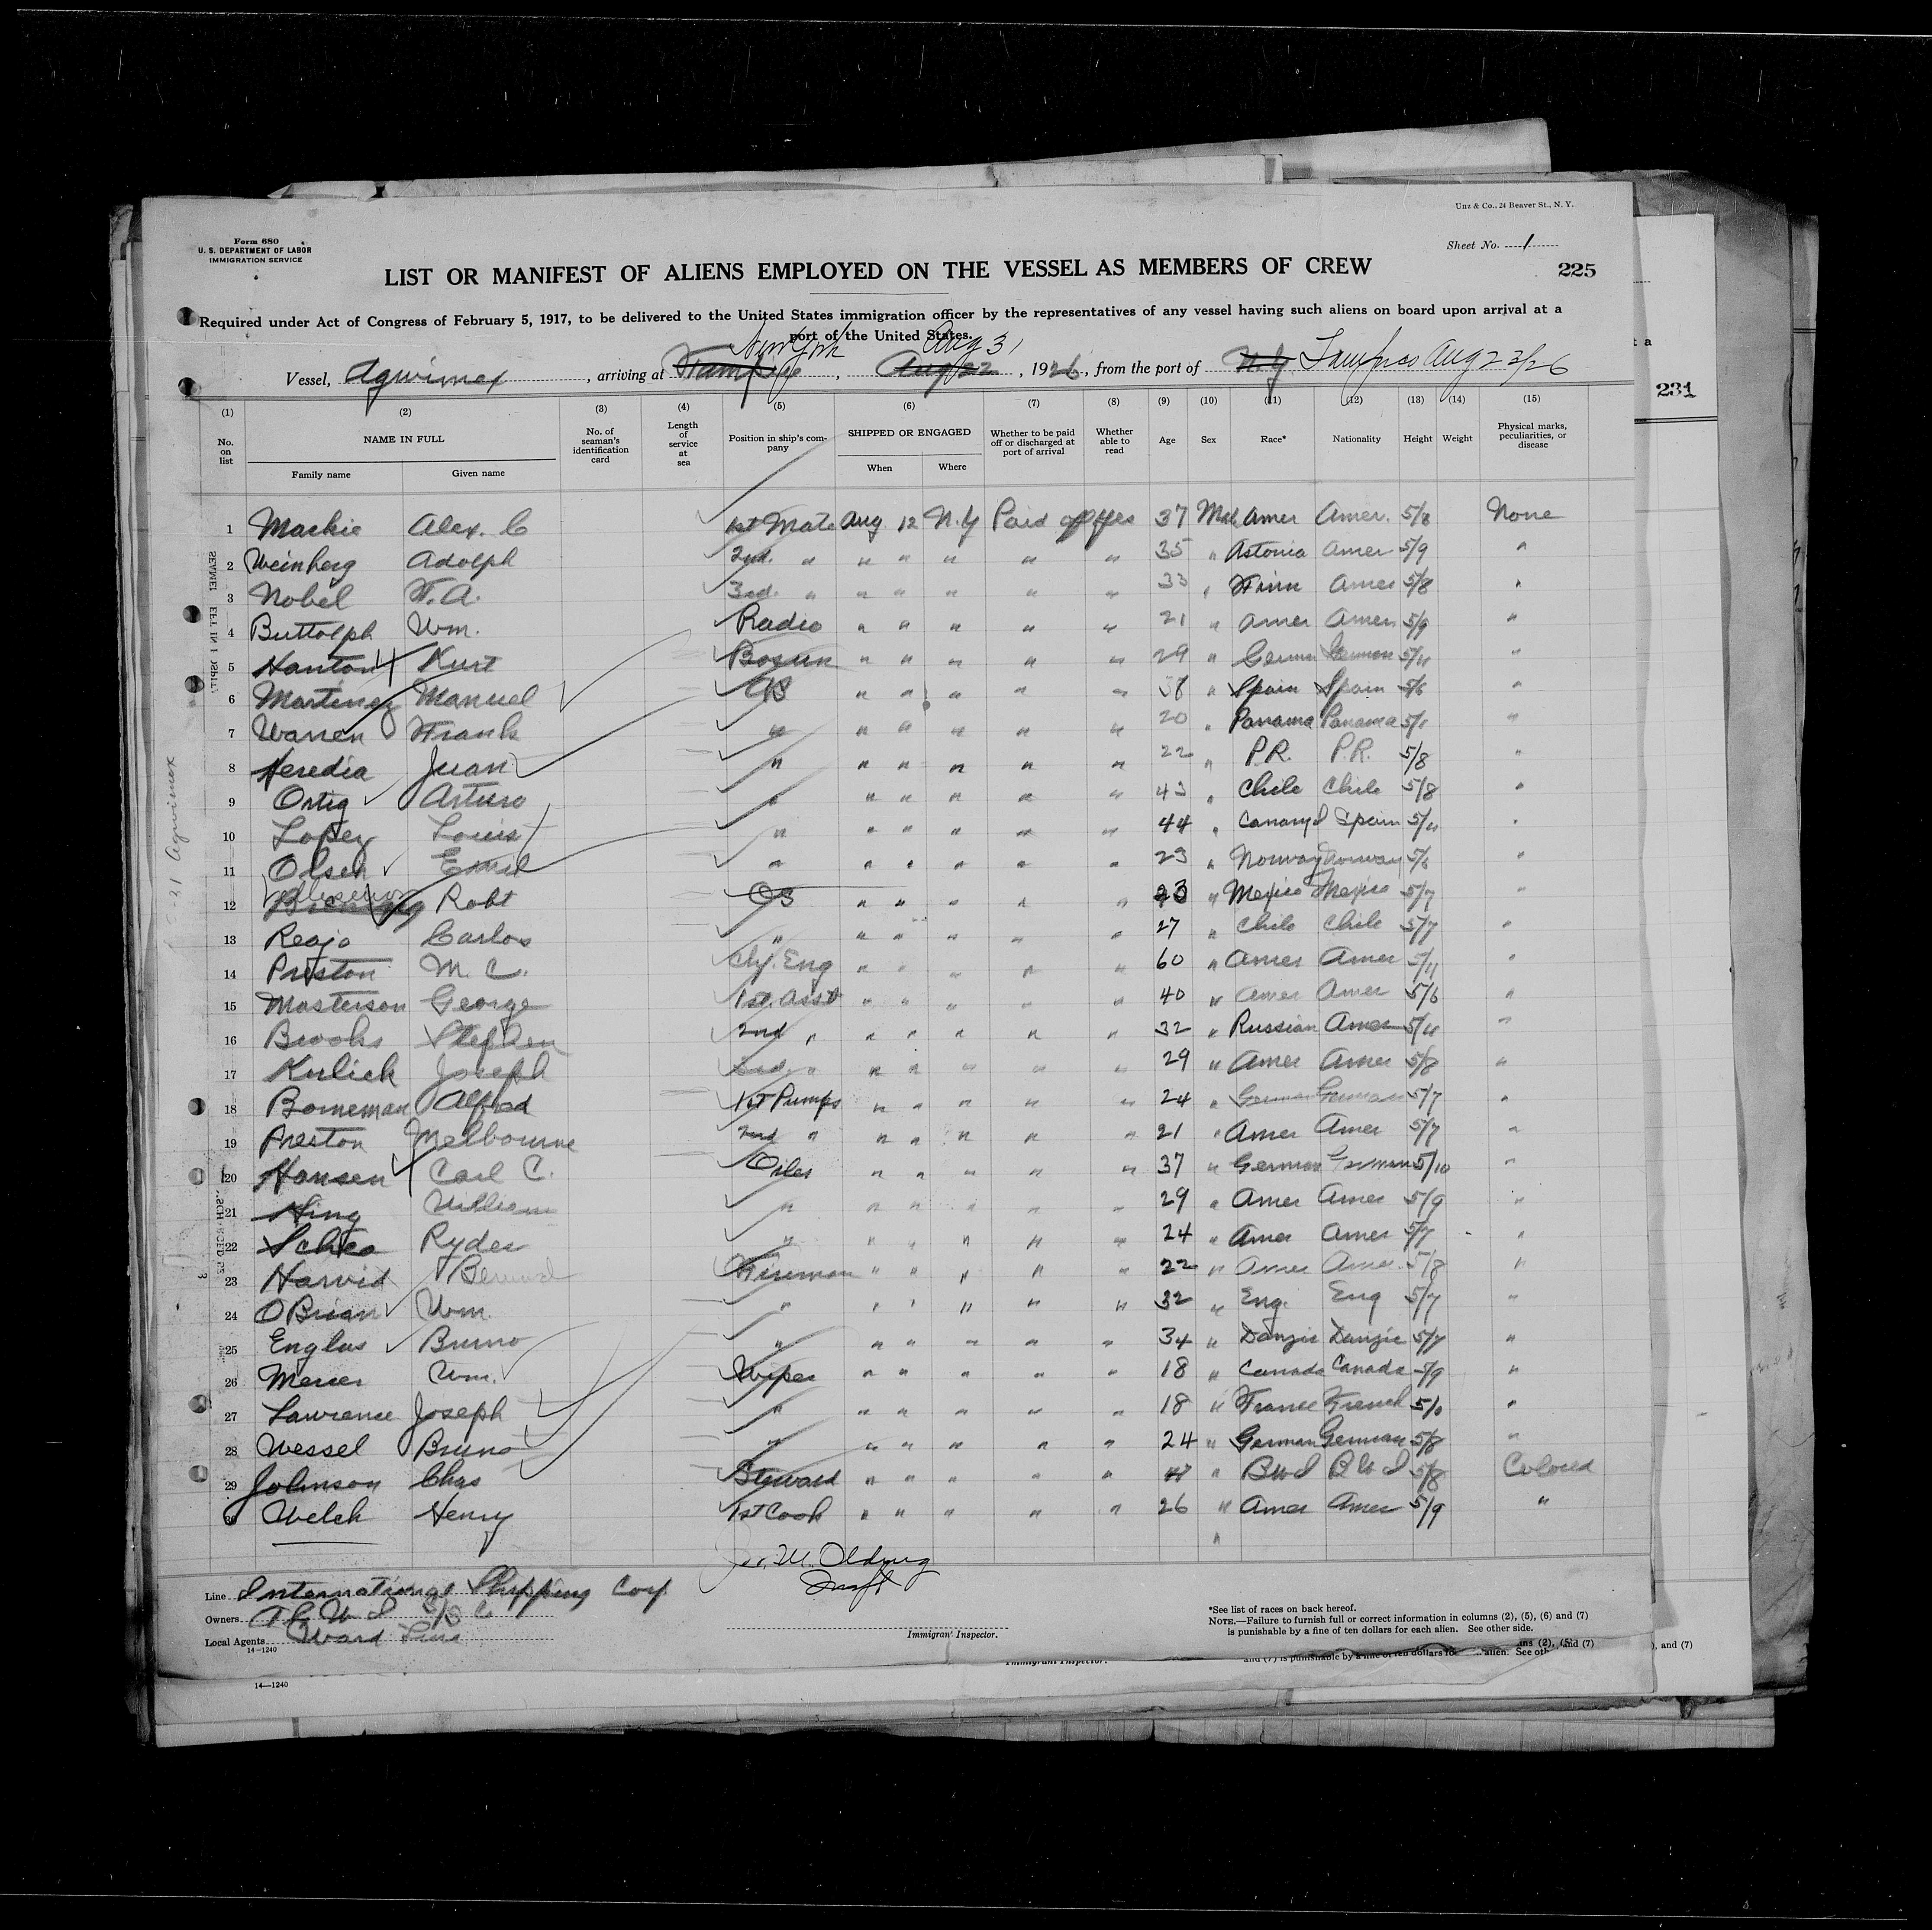 Unz & Co., 24 Beaver St., N. Y.
Form 680
U. S. DEPARTMENT OF LABOR
IMMIGRATION SERVICE
Sheet No. 1
LIST OR MANIFEST OF ALIENS EMPLOYED ON THE VESSEL AS MEMBERS OF CREW
225
Required under Act of Congress of February 5, 1917, to be delivered to the United States immigration officer by the representatives of any vessel having such aliens on board upon arrival at a
port of the United States.
New York Aug 31
Vessel, Agwimex, arriving at Tampico, Aug 22, 1926, from the port of N.Y. Tampico Aug 23/26
231
(1) (2) (3) (4) (5) (6) (7) (8) (9) (10) (11) (12) (13) (14) (15)
No. on list NAME IN FULL No. of seaman's identification card Length of service at sea Position in ship's company SHIPPED OR ENGAGED Whether to be paid off or discharged at port of arrival Whether able to read Age Sex Race* Nationality Height Weight Physical marks, peculiarities, or disease
Family name Given name When Where
1 Mackie Alex. C 1st Mate Aug 12 N.Y Paid off yes 37 Male Amer Amer. 5/8 None
2 Weinberg Adolph 2nd. " " " " " " 35 " Astonia Amer 5/9 "
3 Nobel F. A. 3rd. " " " " " " 33 " Finn Amer 5/8 "
4 Buttolph Wm. Radio " " " " " 21 " Amer Amer 5/9 "
5 Hanton Kurt Bosun " " " " " 29 " German German 5/11 "
6 Martinez Manuel AB " " " " " 38 " Spain Spain 5/6 "
7 Warren Frank " " " " " " 20 " Panama Panama "
8 Heredia Juan " " " " " " 22 " P.R. P.R. 5/8 "
9 Ortiz Arturo " " " " " " 43 " Chile Chile 5/8 "
10 Lopez Louis " " " " " " 44 " Canary I Spain 5/11 "
11 Olsen Emil " " " " " " 23 " Norway Norway 5/6 "
12 Robt OS " " " " " 23 " Mexico Mexico 5/7 "
13 Reojo Carlos " " " " " " 27 " Chile Chile 5/7 "
14 Preston M. C. Chf. Eng " " " " " 60 " Amer Amer 5/11 "
15 Masterson George 1st. Asst " " " " " 40 " Amer Amer 5/6 "
16 Brooks Stephen 2nd " " " " " " 32 " Russian Amer 5/11 "
17 Kulick Joseph 3rd. " " " " " " 29 " Amer Amer 5/8 "
18 Borneman Alfred 1st Pumps " " " " " 24 " German German 5/7 "
19 Preston Melbourne 2nd " " " " " " 21 " Amer Amer 5/7 "
20 Hansen Carl C. Oiler " " " " " 37 " German German 5/10 "
21 King William " " " " " " 29 " Amer Amer 5/9 "
22 Ryder " " " " " " 24 " Amer Amer 5/7 "
23 Fireman " " " " " 22 " Amer Amer. 5/8 "
24 OBrian Wm. " " " " " " 32 " Eng. Eng 5/7 "
25 Englas Bruno " " " " " " 34 " Danzic Danzic 5/7 "
26 Mercer Wm. Wiper " " " " " 18 " Canada Canada 5/9 "
27 Lawrence Joseph " " " " " " 18 " France French "
28 Wessel Bruno " " " " " " 24 " German German 5/8 "
29 Johnson Chas Steward " " " " " " B W I B W I 5/8 Colored
30 Welch Henry 1st Cook " " " " " 26 " Amer Amer 5/9 "
21 Agwimex
Line International Shipping Corp
Owners A G W I S/S C
Local Agents Ward Line
14-1240
Immigrant Inspector.
*See list of races on back hereof.
NOTE.—Failure to furnish full or correct information in columns (2), (5), (6) and (7)
is punishable by a fine of ten dollars for each alien. See other side.
14—1240